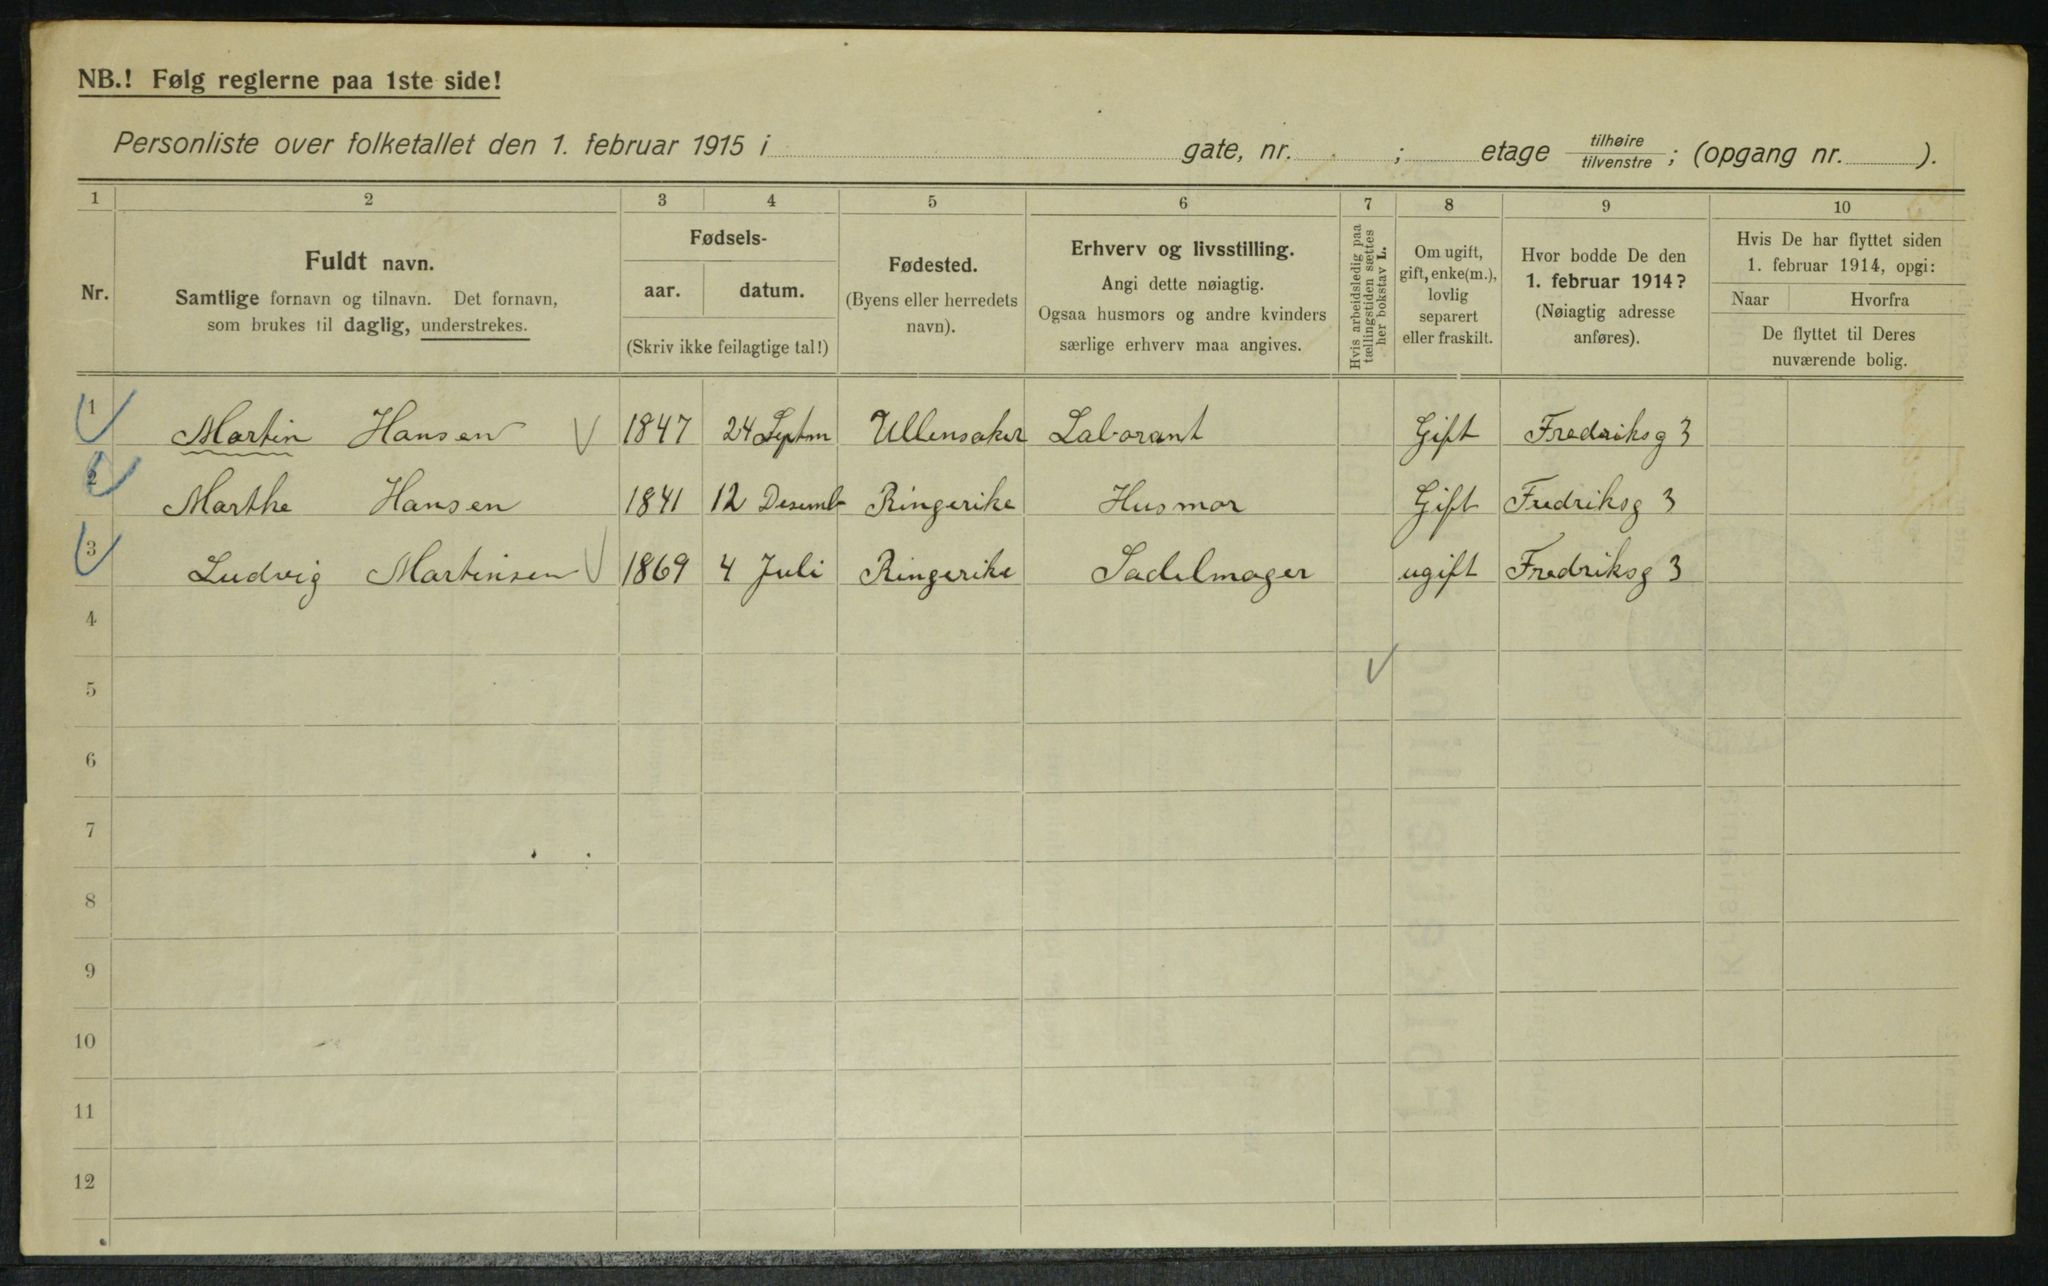 NB.! Følg reglerne paa 1ste side!
Personliste over folketallet den 1. februar 1915 i gate, nr. ; etage tilhøire tilvenstre ; (opgang nr. ).
1 2 3 4 5 6 7 8 9 10
Nr.
Fuldt navn.
Samtlige fornavn og tilnavn. Det fornavn,
som brukes til daglig, understrekes.
Fødsels-
aar. datum.
(Skriv ikke feilagtige tal!)
Fødested.
(Byens eller herredets
navn).
Erhverv og livsstilling.
Angi dette nøiagtig.
Ogsaa husmors og andre kvinders
særlige erhverv maa angives.
Hvis arbeidsledig paa
tællingstiden sættes
her bokstav L.
Om ugift,
gift, enke(m.),
lovlig
separert
eller fraskilt.
Hvor bodde De den
1. februar 1914?
(Nøiagtig adresse
anføres).
Hvis De har flyttet siden
1. februar 1914, opgi:
Naar Hvorfra
De flyttet til Deres
nuværende bolig.
1 Martin Hansen 1847 24 Septm Ullensaker Laborant Gift Fredriksg 3
2 Marthe Hansen 1841 12 Desemb Ringerike Husmor Gift Fredriksg 3
3 Ludvig Martinsen 1869 4 Juli Ringerike Sadelmager ugift Fredriksg 3
4
5
6
7
8
9
10
11
12